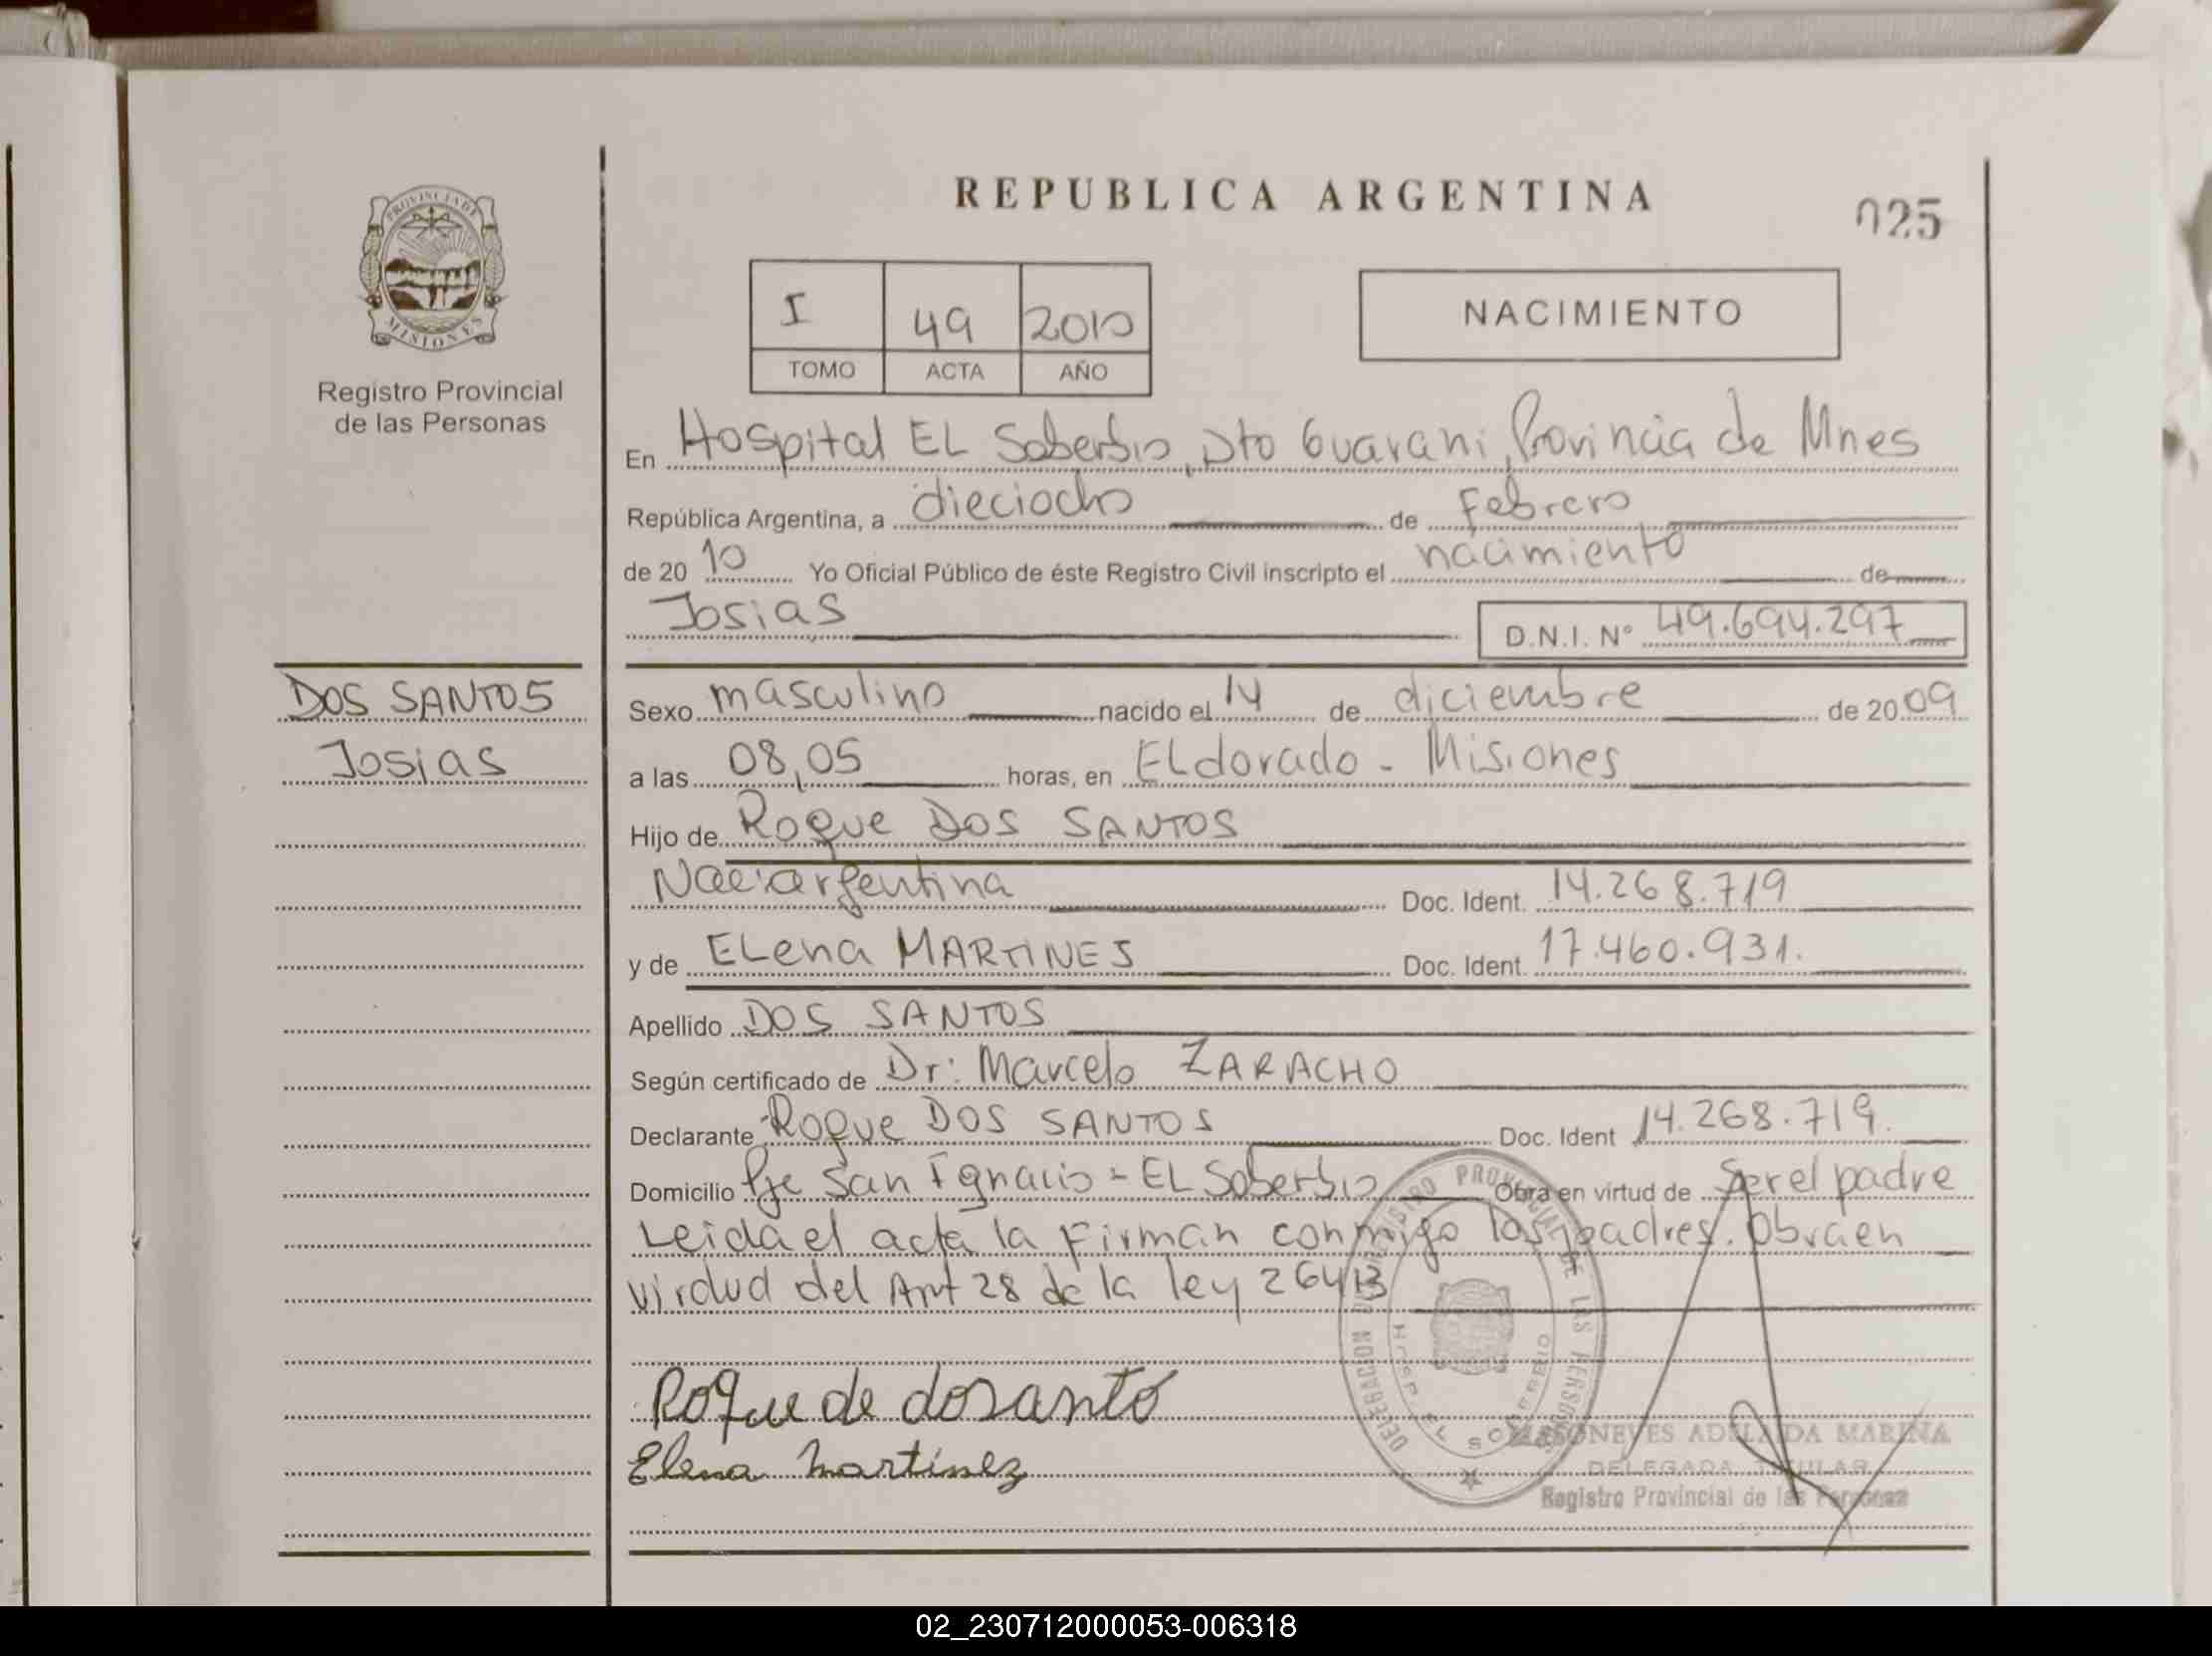 REPUBLICA ARGENTINA
025
PROVINCIA DE
MISIONES
Registro Provincial
de las Personas
I 49 2010
TOMO ACTA AÑO
NACIMIENTO
En Hospital EL Soberbio, Dto Guarani, Provincia de Mnes
República Argentina, a dieciocho de Febrero
de 2010 Yo Oficial Público de éste Registro Civil inscripto el nacimiento de
Josias D.N.I. Nº 49.694.297
DOS SANTOS
Josias
Sexo masculino nacido el 14 de diciembre de 2009
a las 08,05 horas, en ELdorado - Misiones
Hijo de Roque DOS SANTOS
Nac: argentina Doc. Ident. 14.268.719
y de ELena MARTINES Doc. Ident. 17.460.931.
Apellido DOS SANTOS
Según certificado de Dr: Marcelo ZARACHO
Declarante Roque DOS SANTOS Doc. Ident 14.268.719.
Domicilio Pje San Ignacio - EL Soberbio Obra en virtud de Ser el padre
Leida el acta la Firman conmigo los padres. Obra en
virdud del Art 28 de la ley 26413
Roque de dosanto
Elena Martinez
DELEGACION REGISTRO PROVINCIAL DE LAS PERSONAS
ADELAIDA MARINA
DELEGADA TITULAR
Registro Provincial de las Personas
02_230712000053-006318